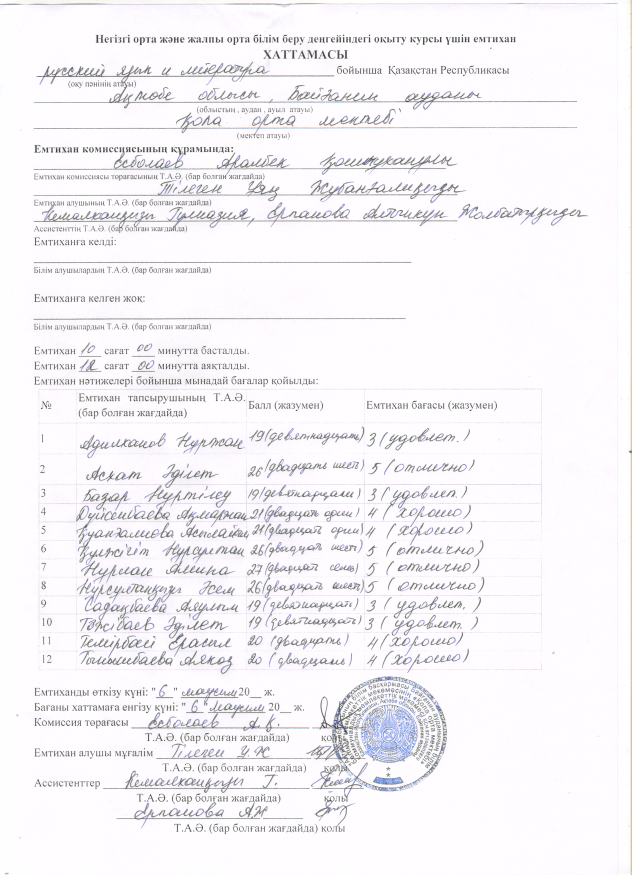 Негізгі орта және жалпы орта білім беру деңгейіндегі оқыту курсы үшін емтихан
ХАТТАМАСЫ
русский язык и литература бойынша Қазақстан Республикасы
(оқу пәнінің атауы)
Ақтөбе облысы, Байғанин ауданы
(облыстың, аудан, ауыл атауы)
орта мектебі
(мектеп атауы)
Емтихан комиссиясының құрамында:
Есболаев
Емтихан комиссиясы төрағасының Т.А.Ә. (бар болған жағдайда)
Тілеген
Емтихан алушының Т.А.Ә. (бар болған жағдайда)
Кемалханқызы Гулназия, Ерпанова
Ассистенттің Т.А.Ә. (бар болған жағдайда)
Емтиханға келді:
Білім алушылардың Т.А.Ә. (бар болған жағдайда)
Емтиханға келген жоқ:
Білім алушылардың Т.А.Ә. (бар болған жағдайда)
Емтихан 10 сағат 00 минутта басталды.
Емтихан 12 сағат 00 минутта аяқталды.
Емтихан нәтижелері бойынша мынадай бағалар қойылды:
№ Емтихан тапсырушының Т.А.Ә. (бар болған жағдайда) Балл (жазумен) Емтихан бағасы (жазумен)
1 Адилханов Нұржан 19 (девятнадцать) 3 (удовлет.)
2 Асхат Әділет 26 (двадцать шесть) 5 (отлично)
3 Базар Нұртілеу 19 (девятнадцать) 3 (удовлет.)
4 Дүйсенбаева Ақмаржан 21 (двадцать один) 4 (хорошо)
5 Қуанғалиова 21 (двадцать один) 4 (хорошо)
6 Құлжігіт Нұрсұлтан 26 (двадцать шесть) 5 (отлично)
7 Нұрлан Амина 27 (двадцать семь) 5 (отлично)
8 Нұрсұлтанқызы Әсем 26 (двадцать шесть) 5 (отлично)
9 Садақбаева 19 (девятнадцать) 3 (удовлет.)
10 Тәжібаев Әділет 19 (девятнадцать) 3 (удовлет.)
11 Темірбай Ерасыл 20 (двадцать) 4 (хорошо)
12 20 (двадцать) 4 (хорошо)
Емтиханды өткізу күні: "6" маусым 20__ ж.
Бағаны хаттамаға енгізу күні: "6" маусым 20__ ж.
Комиссия төрағасы Есболаев А.Қ.
Т.А.Ә. (бар болған жағдайда) қолы
Емтихан алушы мұғалім Тілеген Ұ.Ж
Т.А.Ә. (бар болған жағдайда) қолы
Ассистенттер Кемалханқызы Г.
Т.А.Ә. (бар болған жағдайда) қолы
Ерпанова А.Ж
Т.А.Ә. (бар болған жағдайда) қолы